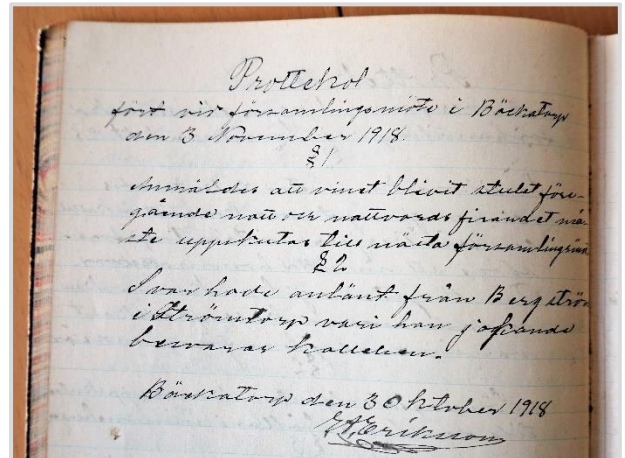 Prottekol
fört vid församlingsmöte i Bäckatorp
den 3 November 1918.
§1
Anmäldes att vinet blivit stulet före-
gående natt och nattvards firandet må-
ste uppskutas till nästa församlingsmö
§2
Svar hade anlänt från Bergströ
i Strömtorp vari han jakande
besvarar kallelsen.
Bäckatorp den 3 Oktober 1918
E A Eriksson